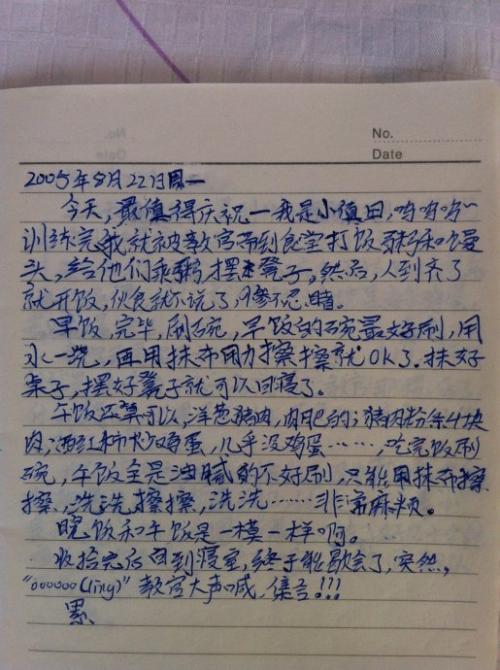 No.
Date
2005年8月22日周一
今天,最值得庆祝—我是小值日,哈哈哈~
训练完我就被教官带到食堂打饭粥和馒
头,给他们乘粥,摆凳子。然后,人到齐了
就开饭,伙食就不说了,惨不忍睹。
早饭,完毕,刷碗,早饭的碗最好刷,用
水一浇,再用抹布用力擦擦就OK了.抹好
桌子,摆好凳子就可以回寝了。
午饭还算可以,洋葱猪肉,肉肥的;猪肉粉条4块
肉;西红柿炒鸡蛋,几乎没鸡蛋……,吃完饭刷
碗,午饭全是油腻的不好刷,只能用抹布擦
擦、洗洗擦擦,洗洗……非常麻烦。
晚饭和午饭是一模一样啊。
收拾完后回到寝室,终于能歇会了,突然,
“oooooo(ling)”教官大声喊,集合!!!
累